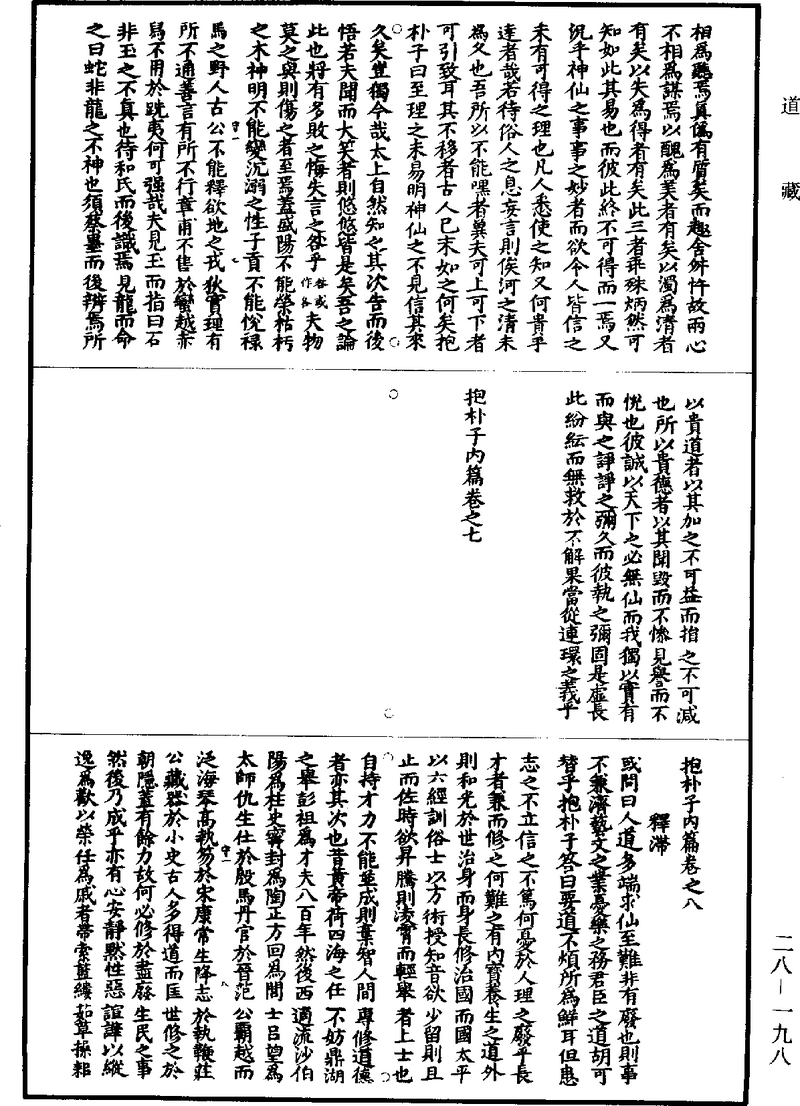 道藏
相爲聽焉真僞有質矣而趣舍舛忤故兩心
不相爲謀焉以醜爲美者有矣以濁爲清者
有矣以失爲得者有矣此三者乖殊炳然可
知如此其易也而彼此終不可得而一焉又
況乎神仙之事事之妙者而欲令人皆信之
未有可得之理也凡人悉使之知又何貴乎
達者哉若待俗人之息妄言則俟河之清未
爲久也吾所以不能嘿者冀夫可上可下者
可引致耳其不移者古人已末如之何矣抱
朴子曰至理之未易明神仙之不見信其來
久矣豈獨今哉太上自然知之其次告而後
悟若夫聞而大笑者則悠悠皆是矣吾之論
此也將有多敗之悔失言之咎乎咎或作各夫物
莫之與則傷之者至焉蓋盛陽不能榮枯朽
之木神明不能變沉溺之性子貢不能悅祿
馬之野人古公不能釋欲地之戎狄實理有
所不通善言有所不行章甫不售於蠻越赤
舄不用於跣夷何可强哉夫見玉而指曰石
非玉之不真也待和氏而後識焉見龍而命
之曰蛇非龍之不神也須蔡墨而後辨焉所
以貴道者以其加之不可益而損之不可減
也所以貴德者以其聞毀而不慘見譽而不
悅也彼誠以天下之必無仙而我獨以實有
而與之諍諍之彌久而彼執之彌固是虛長
此紛紜而無救於不解果當從連環之義乎
抱朴子內篇卷之七
抱朴子內篇卷之八
釋滯
或問曰人道多端求仙至難非有廢也則事
不兼濟藝文之業憂樂之務君臣之道胡可
替乎抱朴子答曰要道不煩所爲鮮耳但患
志之不立信之不篤何憂於人理之廢乎長
才者兼而修之何難之有內寶養生之道外
則和光於世治身而身長修治國而國太平
以六經訓俗士以方術授知音欲少留則且
止而佐時欲昇騰則凌霄而輕舉者上士也
自持才力不能並成則棄智人間專修道德
者亦其次也昔黃帝荷四海之任不妨鼎湖
之舉彭祖爲才夫八百年然後西適流沙伯
陽爲柱史甯封爲陶正方回爲閭士呂望爲
太師仇生仕於殷馬丹官於晉范公霸越而
泛海琴高執笏於宋康常生降志於執鞭莊
公藏器於小史古人多得道而匡世修之於
朝隱蓋有餘力故何必修於盡廢生民之事
然後乃成乎亦有心安靜默性惡諠譁以縱
逸爲歡以榮任爲戚者帶索藍縷茹草操耜
二八—一九八